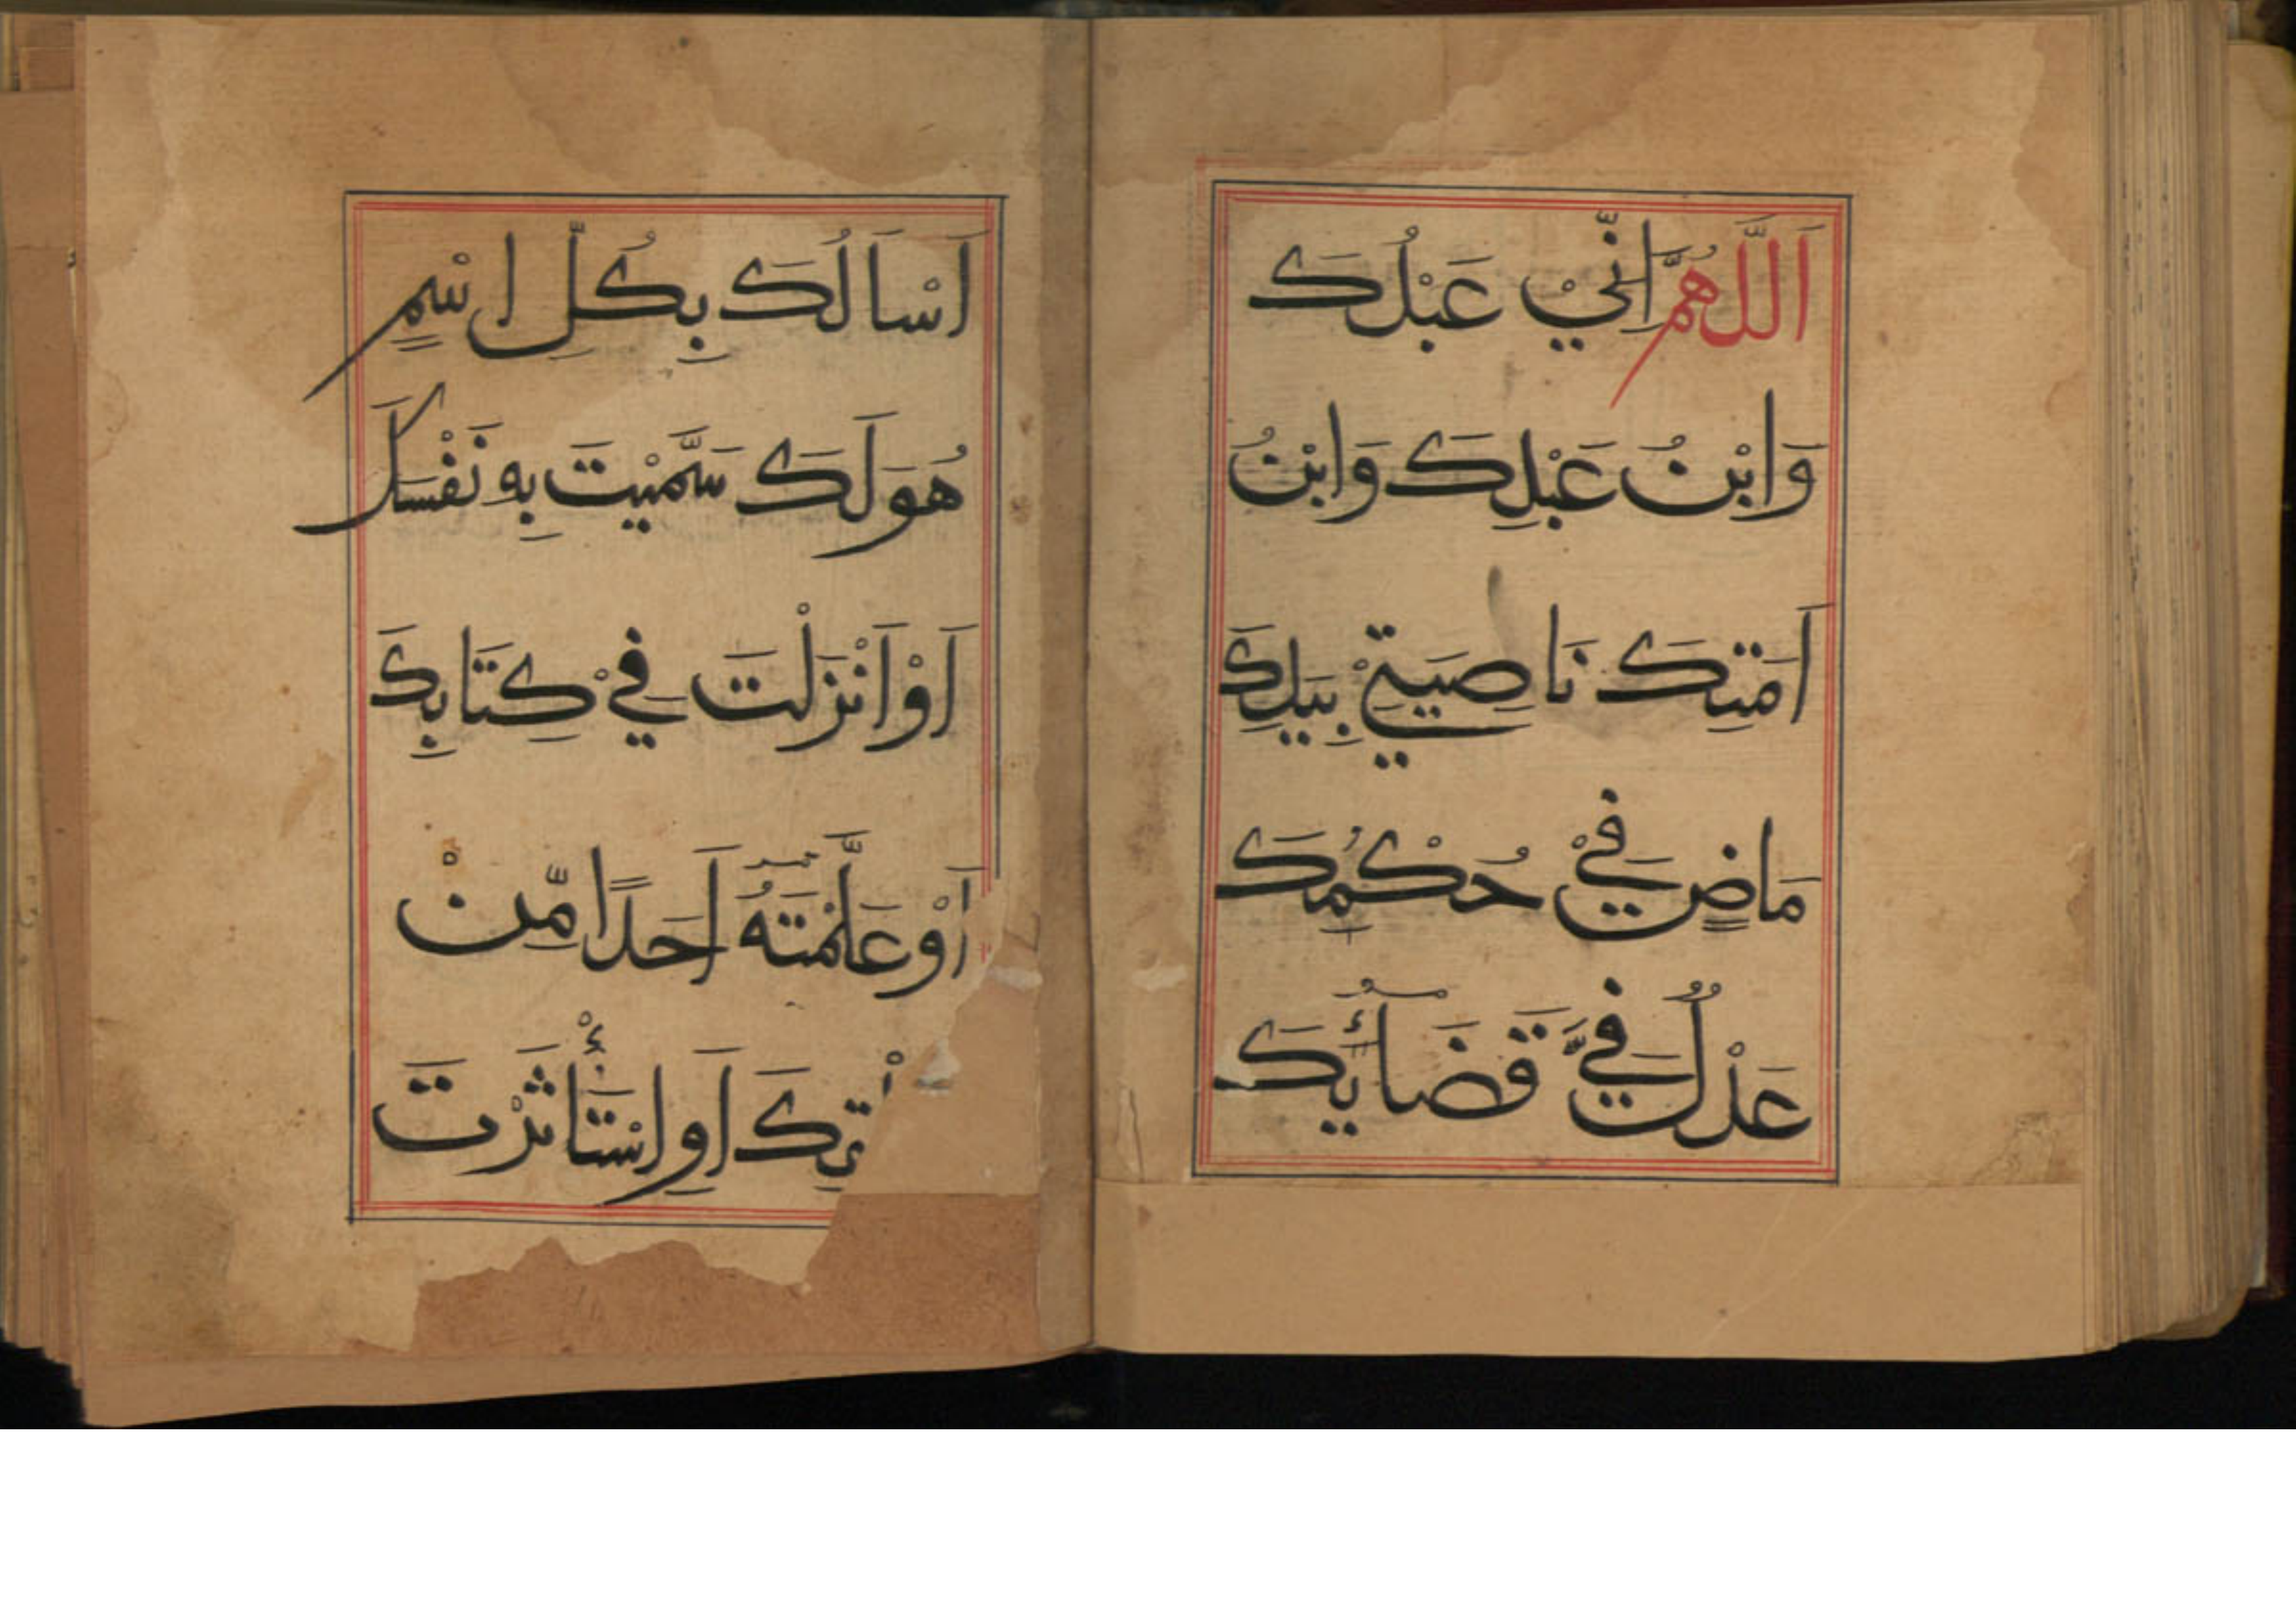 اَللَّهُمَّ اِنِّيْ عَبْدُكَ
وَابْنُ عَبْدِكَ وَابْنُ
اَمَتِكَ نَاصِيَتِيْ بِيَدِكَ
مَاضٍ فِيْ حُكْمُكَ
عَدْلٌ فِيَّ قَضَائُكَ
اَسْاَلُكَ بِكُلِّ اسْمٍ
هُوَ لَكَ سَمَّيْتَ بِهٖ نَفْسَكَ
اَوْ اَنْزَلْتَ فِيْ كِتَابِكَ
اَوْ عَلَّمْتَهُ اَحَدًا مِّنْ
اَوِ اسْتَأْثَرْتَ